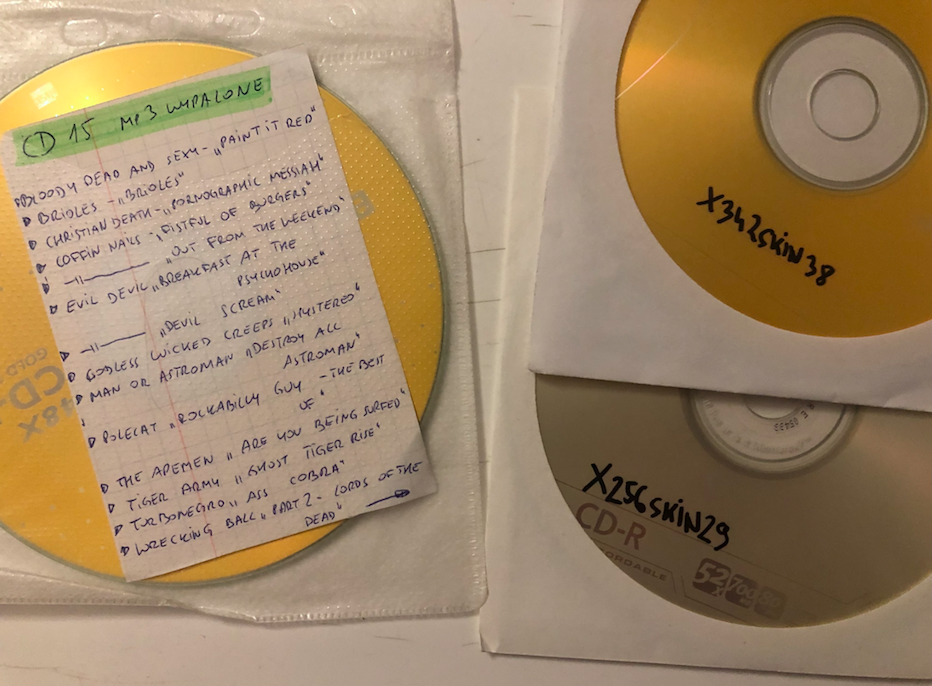 CD 15 MP3 WYPALONE
BLOODY DEAD AND SEXY - „PAINT IT RED"
BRIDLES - „BRIDLES"
CHRISTIAN DEATH - „PORNOGRAPHIC MESSIAH"
COFFIN NAILS - „FISTFUL OF BURGERS"
-11- „OUT FROM THE WEEKEND"
EVIL DEVIL „BREAKFAST AT THE
PSYCHOHOUSE"
-11- „DEVIL SCREAM"
GODLESS WICKED CREEPS „HYSTERED"
MAN OR ASTROMAN „DESTROY ALL
ASTROMAN"
POLECAT „ROCKABILLY GUY - THE BEST
OF"
THE APEMEN „ARE YOU BEING SURFED"
TIGER ARMY „GHOST TIGER RISE"
TURBONEGRO „ASS COBRA"
WRECKING BALL „PART 2 - LORDS OF THE
DEAD"
48X
CD-
GOLD
X342SKIN38
X256SKIN29
CD-R
52x 700 80